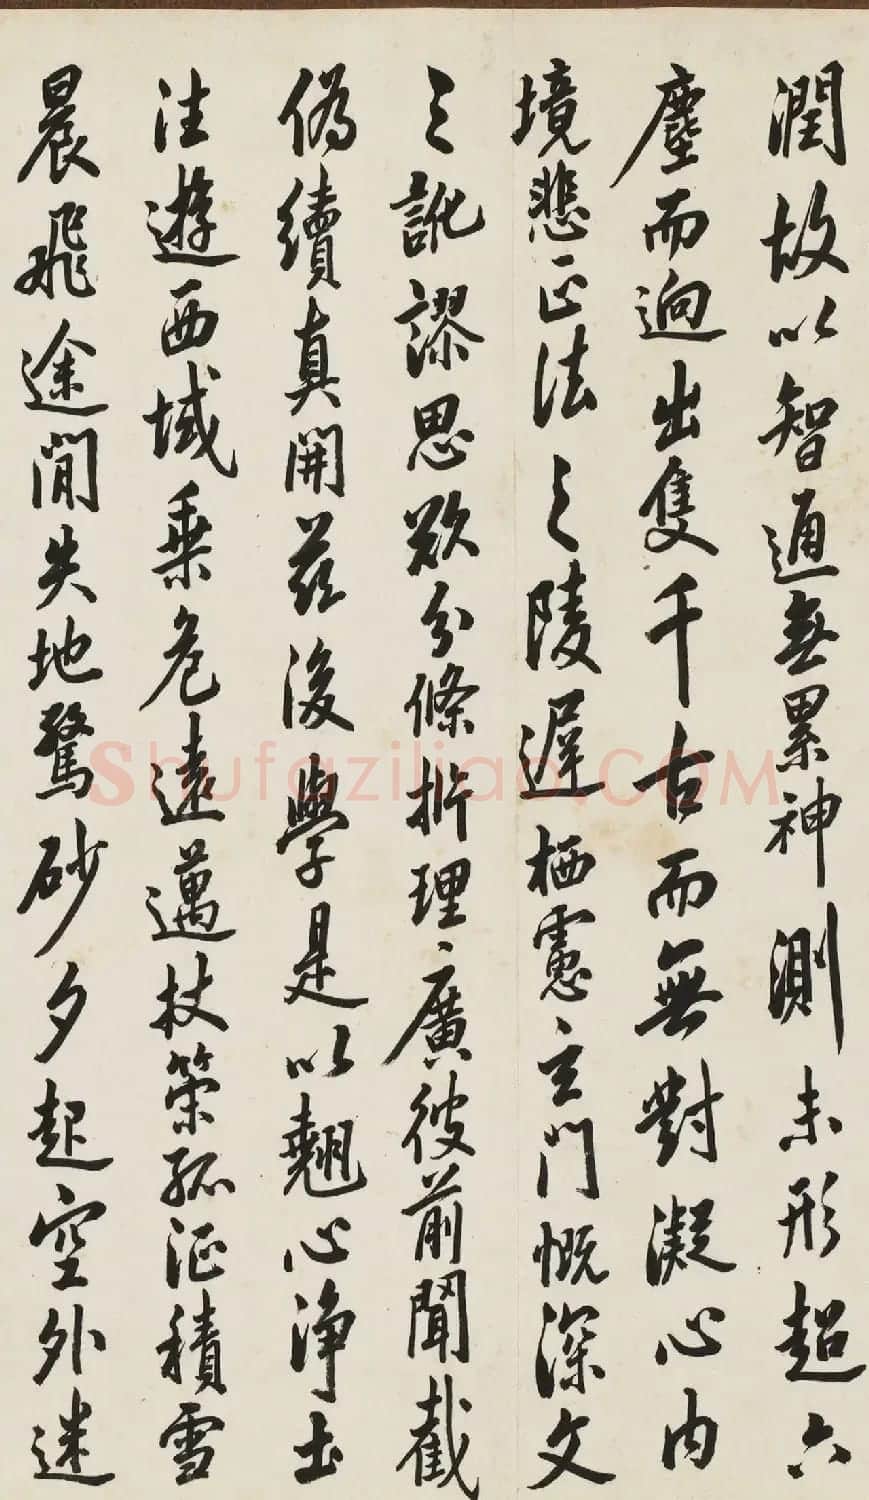 潤故以智通無累神測未形超六
塵而迥出隻千古而無對凝心內
境悲正法之陵遲栖慮玄門慨深文
之訛謬思欲分條析理廣彼前聞截
偽續真開茲後學是以翹心淨土
往遊西域乘危遠邁杖策孤征積雪
晨飛途閒失地驚砂夕起空外迷
Shufaziliao.COM